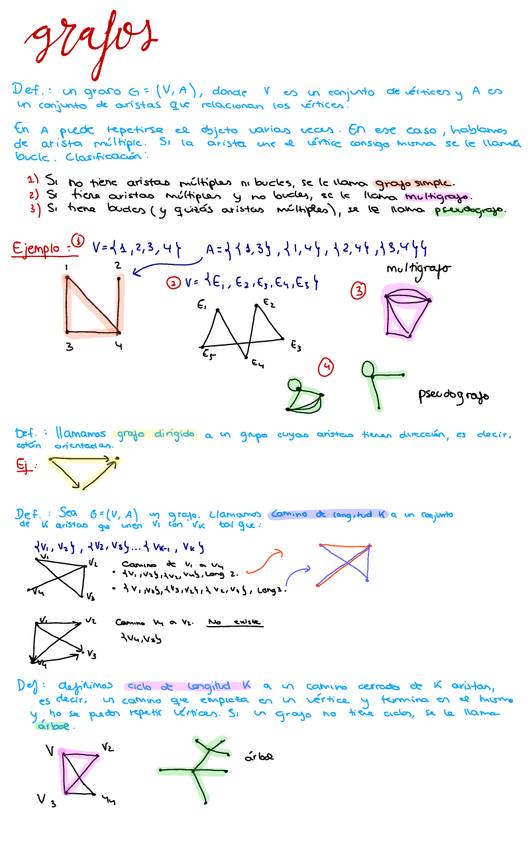 grafos
Def.: un grafo G = (V, A), donde V es un conjunto de vértices y A es
un conjunto de aristas que relacionan los vértices.
En A puede repetirse el objeto varias veces. En ese caso, hablamos
de arista múltiple. Si la arista une el vértice consigo misma se le llamará
bucle. Clasificación:
1) Si no tiene aristas múltiples ni bucles, se le llama grafo simple.
2) Si tiene aristas múltiples y no bucles, se le llama multigrafo.
3) Si tiene bucles (y quizás aristas múltiples), se le llama pseudografo.
Ejemplo: ① V={1,2,3,4} A={{1,3},{1,4},{2,4},{3,4}}
1 2
3 4
② V={E1, E2, E3, E4, E5}
E1 E2
E5 E4 E3
③ multigrafo
④ pseudografo
Def.: llamamos grafo dirigido a un grupo cuyas aristas tienen dirección, es decir,
están orientadas.
Ej:
Def.: Sea G=(V, A) un grafo. Llamamos camino de longitud K a un conjunto
de K aristas que unen V1 con VK tal que:
{V1, V2}, {V2, V3}...{VK-1, VK}
V1 V2
V4 V3
Camino de V1 a V4
• {V1,V2},{V2,V4}, Long 2.
• {V1,V3},{V3,V2},{V2,V4}, Long 3.
V1 V2
V4 V3
Camino V4 a V2. No existe
{V4,V3}
Def: definimos ciclo de longitud K a un camino cerrado de K aristas,
es decir, un camino que empieza en un vértice y termina en el mismo
y no se pueden repetir vértices. Si un grafo no tiene ciclos, se le llama
árbol.
V V2
V3 V4
árbol